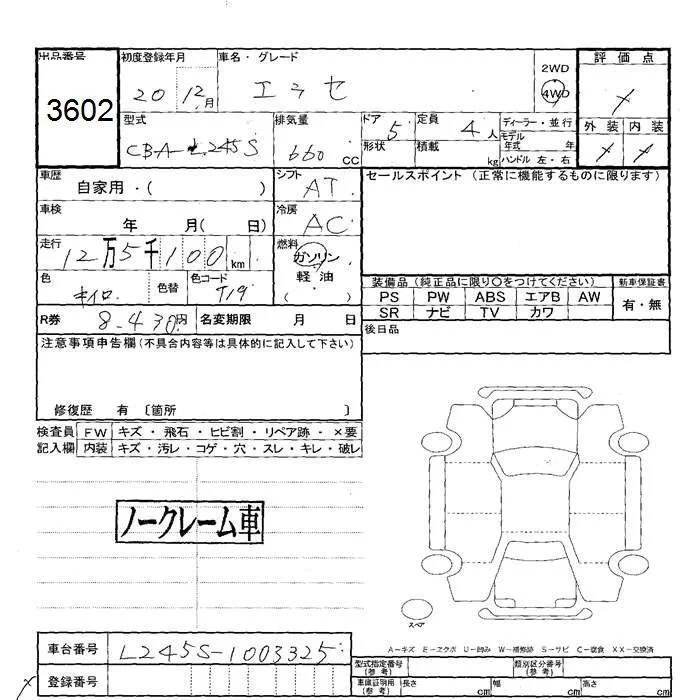 出品番号 初度登録年月 車名・グレード 2WD 評価点
3602 20 12月 エッセ 4WD
型式 排気量 ドア 5 定員 4人 ディーラー・並行 外装 内装
CBA-L245S 660 CC 形状 積載 kg モデル年式 年
ハンドル 左・右
車歴 自家用・( ) シフト AT セールスポイント (正常に機能するものに限ります)
車検 年 月( 日) 冷房 AC
走行 12万5千100 km 燃料 ガソリン
軽油
( )
色 キイロ 色替 色コード T19 装備品 (純正品に限り○をつけてください) 新車保証書
PS PW ABS エアB AW 有・無
SR ナビ TV カワ
R券 8.430円 名変期限 月 日 後日品
注意事項申告欄(不具合内容等は具体的に記入して下さい)
修復歴 有 〔箇所 〕
検査員 FW キズ・飛石・ヒビ割・リペア跡・×要
記入欄 内装 キズ・汚レ・コゲ・穴・スレ・キレ・破レ
ノークレーム車
スペア
A-キズ E-エクボ U-凹み W-補修跡 S-サビ C-腐食 XX-交換済
車台番号 L245S-1003325
型式指定番号(参考) 類別区分番号(参考)
登録番号 車庫証明用(参考) 長さ cm 幅 cm 高さ cm